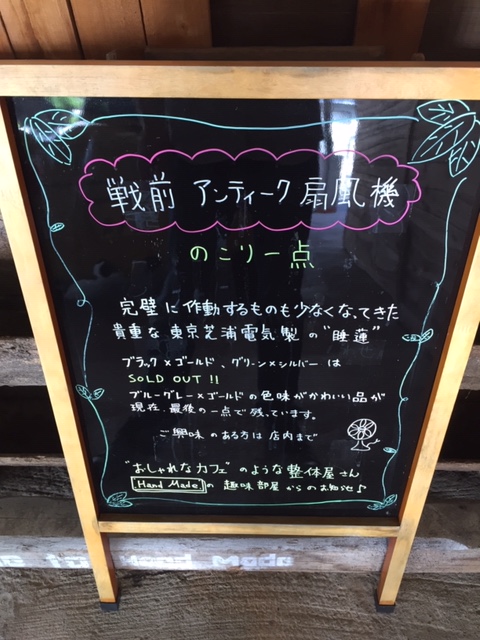 戦前 アンティーク扇風機
のこり一点
完璧に作動するものも少なくなってきた
貴重な東京芝浦電気製の"睡蓮"
ブラック×ゴールド、グリーン×シルバーは
SOLD OUT !!
ブルーグレー×ゴールドの色味がかわいい品が
現在、最後の一点で残っています。
ご興味のある方は店内まで
"おしゃれなカフェ"のような整体屋さん
Hand Madeの趣味部屋からのお知らせ♪
Hand Made